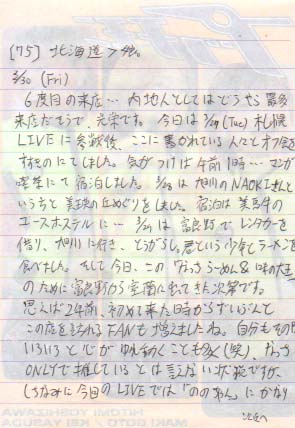 [75] 北海道>4th.
3/30 (Fri)
6度目の来店… 内地人としてはどうやら最多
来店だそうで、光栄です。 今回は3/27(Tue) 札幌
LIVEに参戦後、ここに書かれている人々とオフ会を
すすきのにてしました。気がつけば午前1時…マンガ
喫茶にて宿泊しました。3/28は旭川のNAOKIさんと
いろいろと美瑛の丘めぐりをしました。宿泊は美馬牛の
ユースホステルに… 3/29は富良野でレンタカーを
借り、旭川に行き、とうがらし君という少年とラーメンを
食べました。そして今日、この「なっちらーめん&味の大王」
のために富良野から室蘭に出てきた次第です。
思えば2年前、初めて来た時からずいぶんと
この店を訪れるFANも増えましたね。自分もその間
いろいろと心がゆれ動くことも多く(笑)、なっち
ONLYで推しているとは言えない状況ですが、
ちなみに今回のLIVEでは「ののあん」にかなり
次頁へ
HITOMI YOSHIZAWA
MAKI GOTO / KEI YASUDA